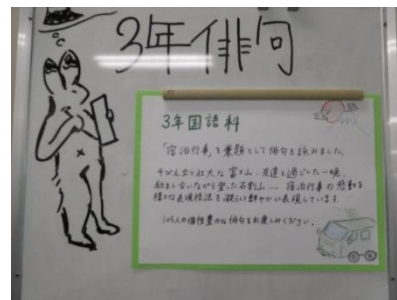 3年俳句
3年国語科
「宿泊行事」を兼題として俳句を詠みました。
そびえ立つ壮大な富士山、友達と過ごした一晩、
励まし合いながら登った石割山…。宿泊行事の感動を
様々な表現技法を凝らし鮮やかに表現しています。
105人の個性豊かな俳句をお楽しみください。